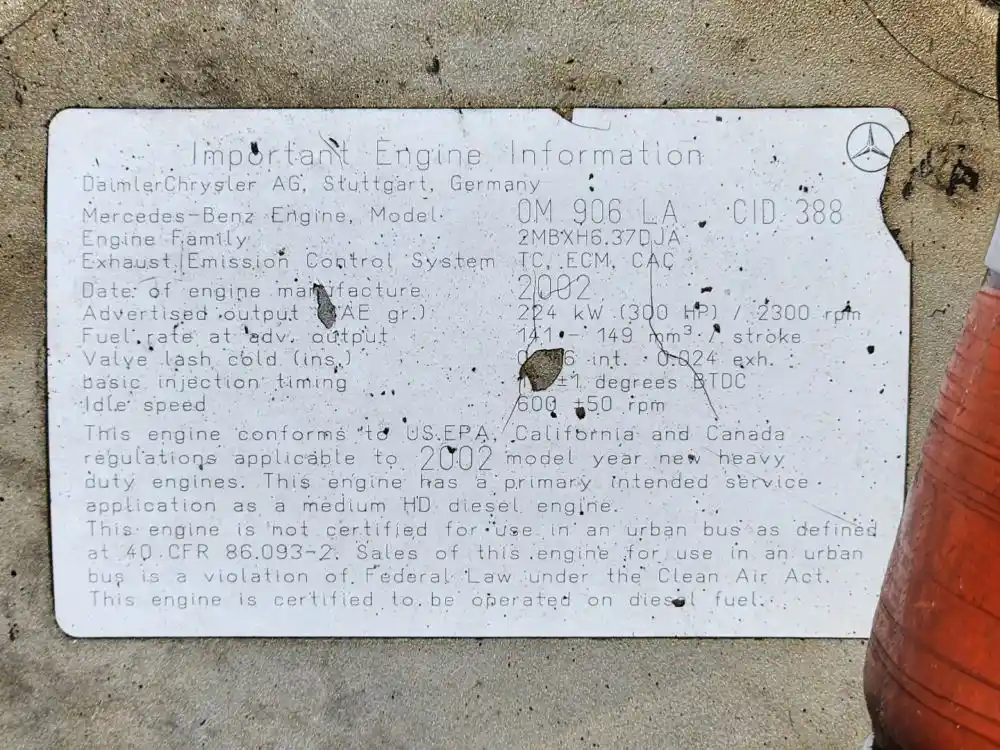 Important Engine Information
DaimlerChrysler AG, Stuttgart, Germany
Mercedes-Benz Engine, Model OM 906 LA CID 388
Engine Family 2MBXH6.37DJA
Exhaust Emission Control System TC, ECM, CAC
Date of engine manufacture 2002
Advertised output gr.) 224 kW (300 HP) / 2300 rpm
Fuel rate at adv. output 141 - 149 mm³ / stroke
Valve lash cold (ins.) int. 0.024 exh.
basic injection timing ±1 degrees BTDC
Idle speed 600 ±50 rpm
This engine conforms to US.EPA, California and Canada
regulations applicable to 2002 model year new heavy
duty engines. This engine has a primary intended service
application as a medium HD diesel engine.
This engine is not certified for use in an urban bus as defined
at 40 CFR 86.093-2. Sales of this engine for use in an urban
bus is a violation of Federal Law under the Clean Air Act.
This engine is certified to be operated on diesel fuel.